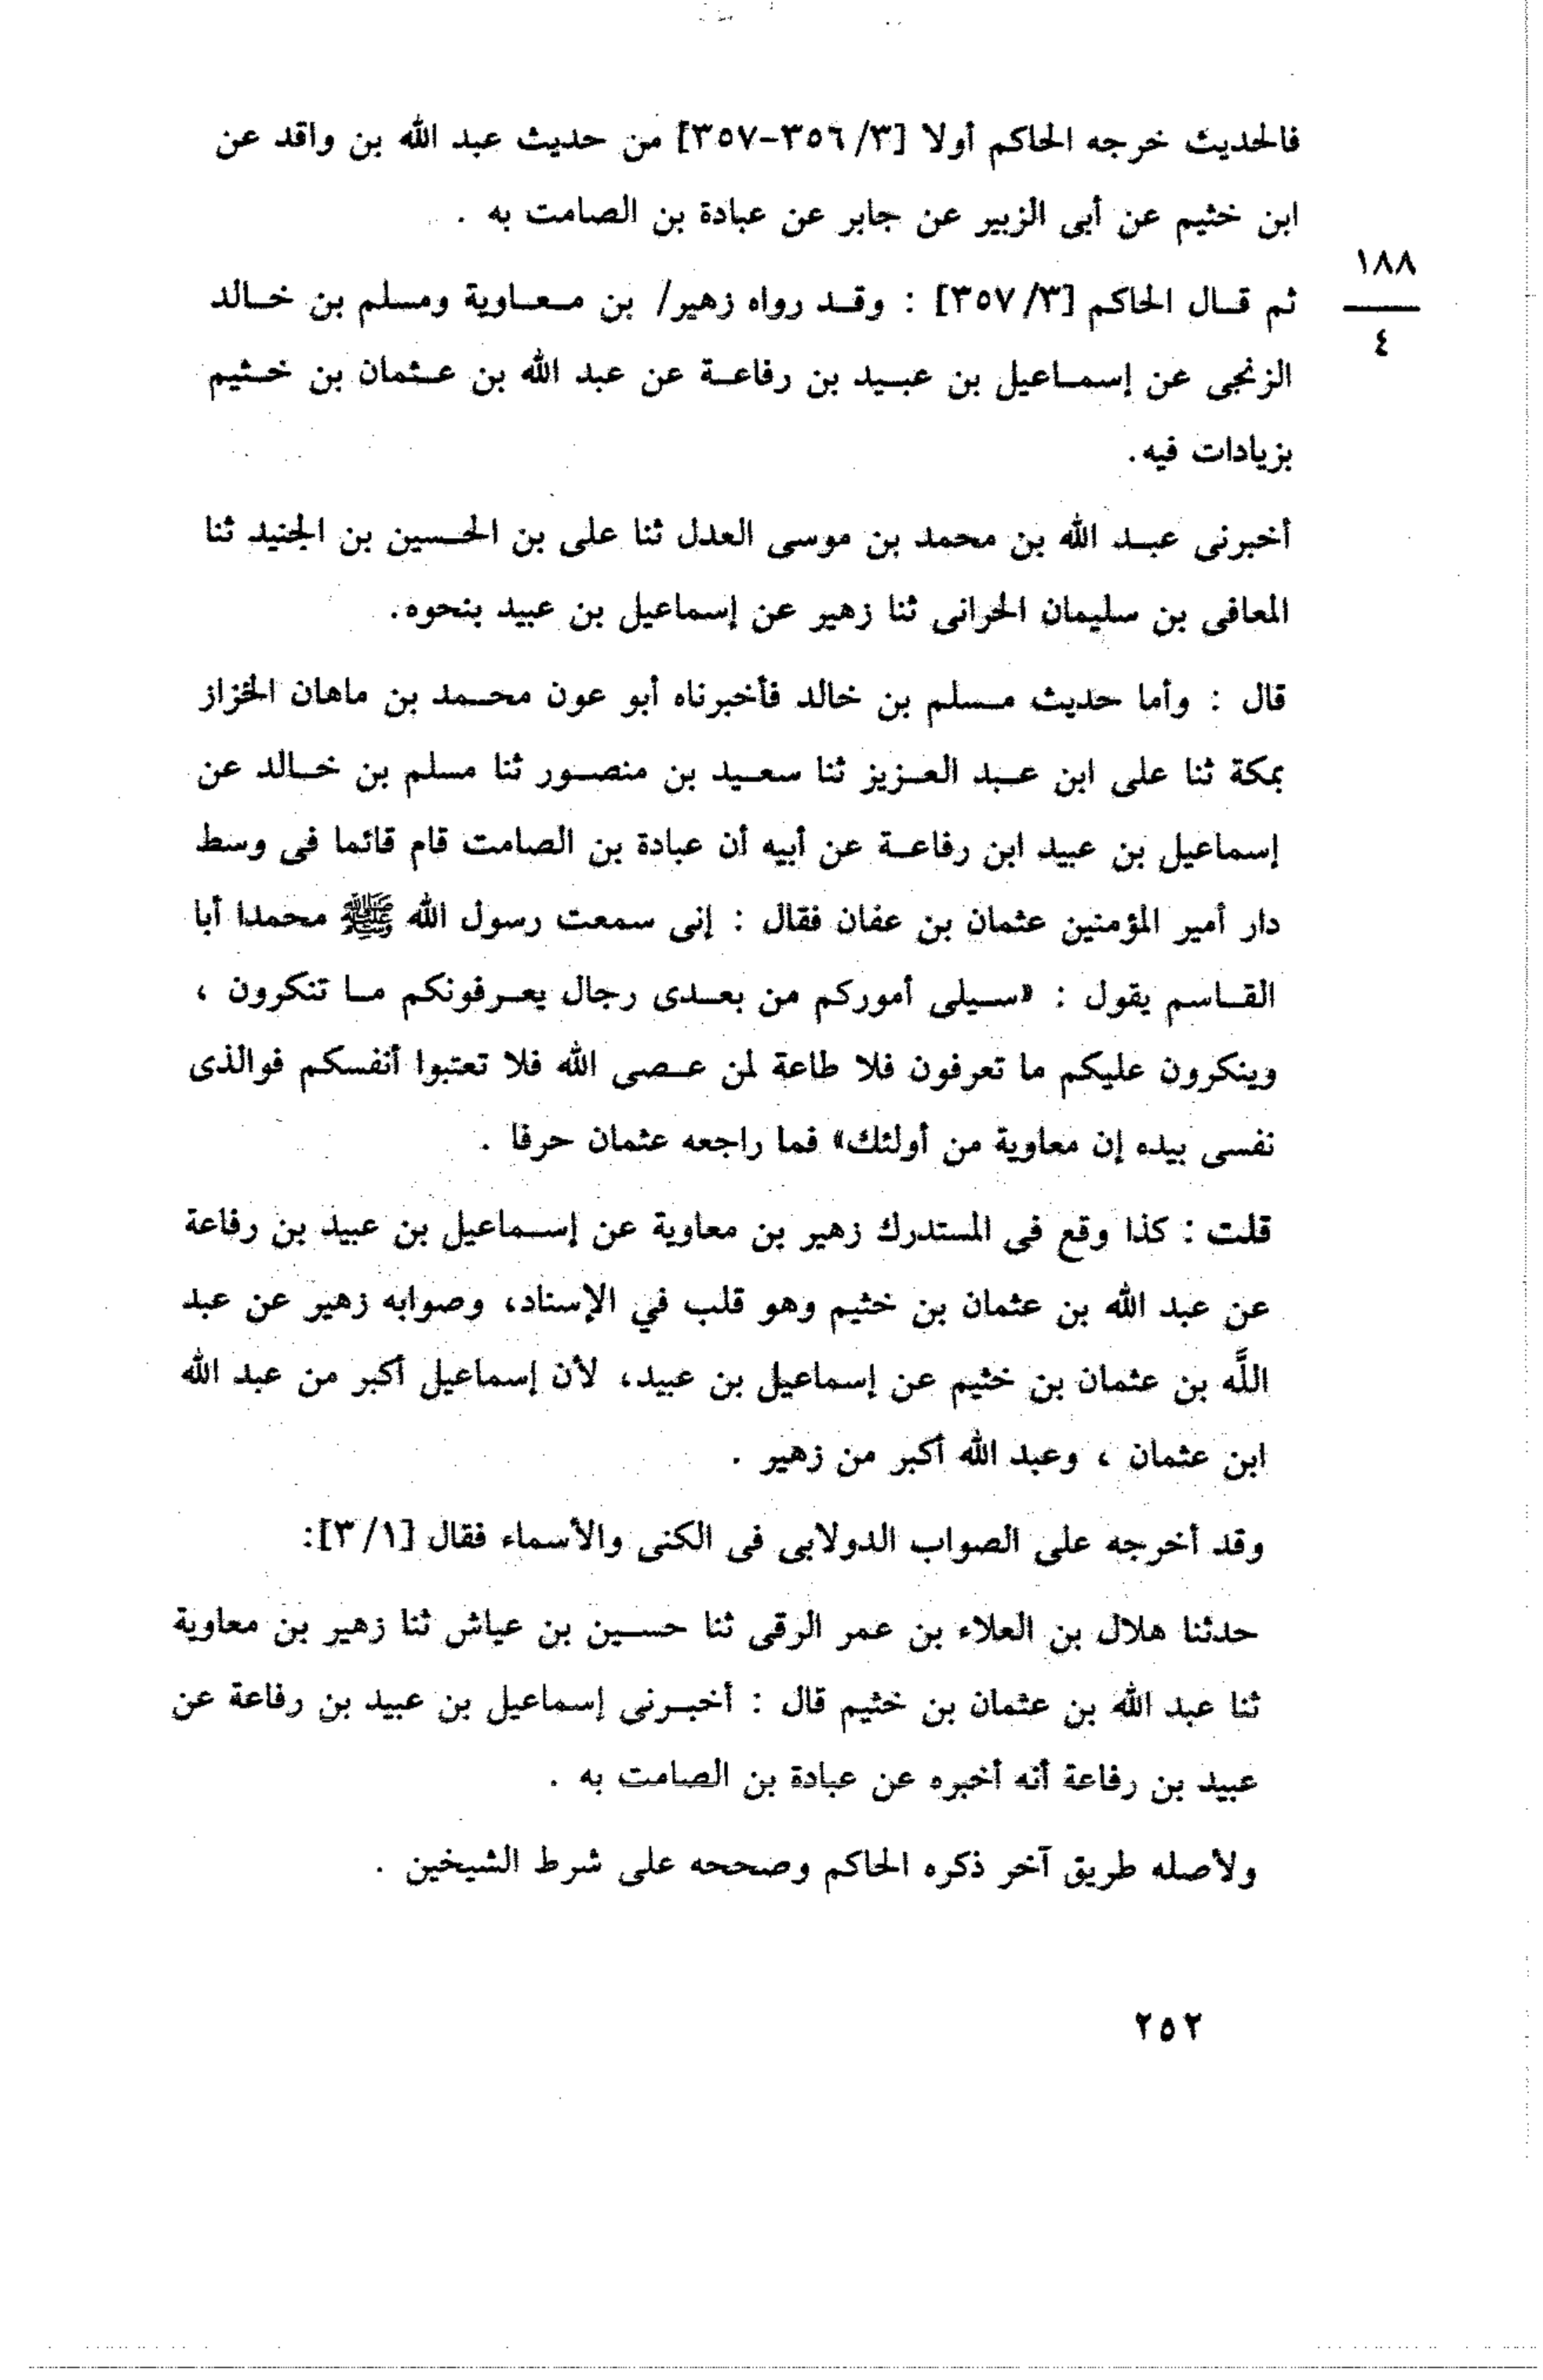 فالحديث خرجه الحاكم أولا [٣/ ٣٥٦-٣٥٧] من حديث عبد الله بن واقد عن
ابن خثيم عن أبى الزبير عن جابر عن عبادة بن الصامت به .
١٨٨
٤
ثم قال الحاكم [٣/ ٣٥٧] : وقد رواه زهير/ بن معاوية ومسلم بن خالد
الزنجى عن إسماعيل بن عبيد بن رفاعة عن عبد الله بن عثمان بن خثيم
بزيادات فيه.
أخبرنى عبد الله بن محمد بن موسى العدل ثنا على بن الحسين بن الجنيد ثنا
المعافى بن سليمان الحرانى ثنا زهير عن إسماعيل بن عبيد بنحوه.
قال : وأما حديث مسلم بن خالد فأخبرناه أبو عون محمد بن ماهان الخزاز
بمكة ثنا على ابن عبد العزيز ثنا سعيد بن منصور ثنا مسلم بن خالد عن
إسماعيل بن عبيد ابن رفاعة عن أبيه أن عبادة بن الصامت قام قائما فى وسط
دار أمير المؤمنين عثمان بن عفان فقال : إنى سمعت رسول الله ﷺ محمدا أبا
القاسم يقول : «سيلى أموركم من بعدى رجال يعرفونكم ما تنكرون ،
وينكرون عليكم ما تعرفون فلا طاعة لمن عصى الله فلا تعتبوا أنفسكم فوالذى
نفسى بيده إن معاوية من أولئك» فما راجعه عثمان حرفا .
قلت : كذا وقع فى المستدرك زهير بن معاوية عن إسماعيل بن عبيد بن رفاعة
عن عبد الله بن عثمان بن خثيم وهو قلب في الإسناد، وصوابه زهير عن عبد
اللَّه بن عثمان بن خثيم عن إسماعيل بن عبيد، لأن إسماعيل أكبر من عبد الله
ابن عثمان ، وعبد الله أكبر من زهير .
وقد أخرجه على الصواب الدولابى فى الكنى والأسماء فقال [١/ ٣]:
حدثنا هلال بن العلاء بن عمر الرقى ثنا حسين بن عياش ثنا زهير بن معاوية
ثنا عبد الله بن عثمان بن خثيم قال : أخبرنى إسماعيل بن عبيد بن رفاعة عن
عبيد بن رفاعة أنه أخبره عن عبادة بن الصامت به .
ولأصله طريق آخر ذكره الحاكم وصححه على شرط الشيخين .
٢٥٢